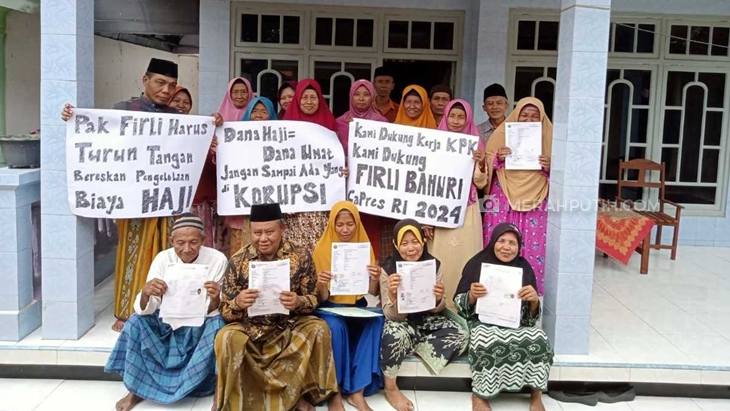 Pak FIRLI Harus
Turun Tangan
Bereskan Pengelolaan
Biaya HAJI
Dana Haji=
Dana Umat
Jangan Sampai Ada yang
di KORUPSI
Kami Dukung Kerja KPK
Kami Dukung
FIRLI BAHURI
CaPres RI 2024
MERAHPUTIH.COM